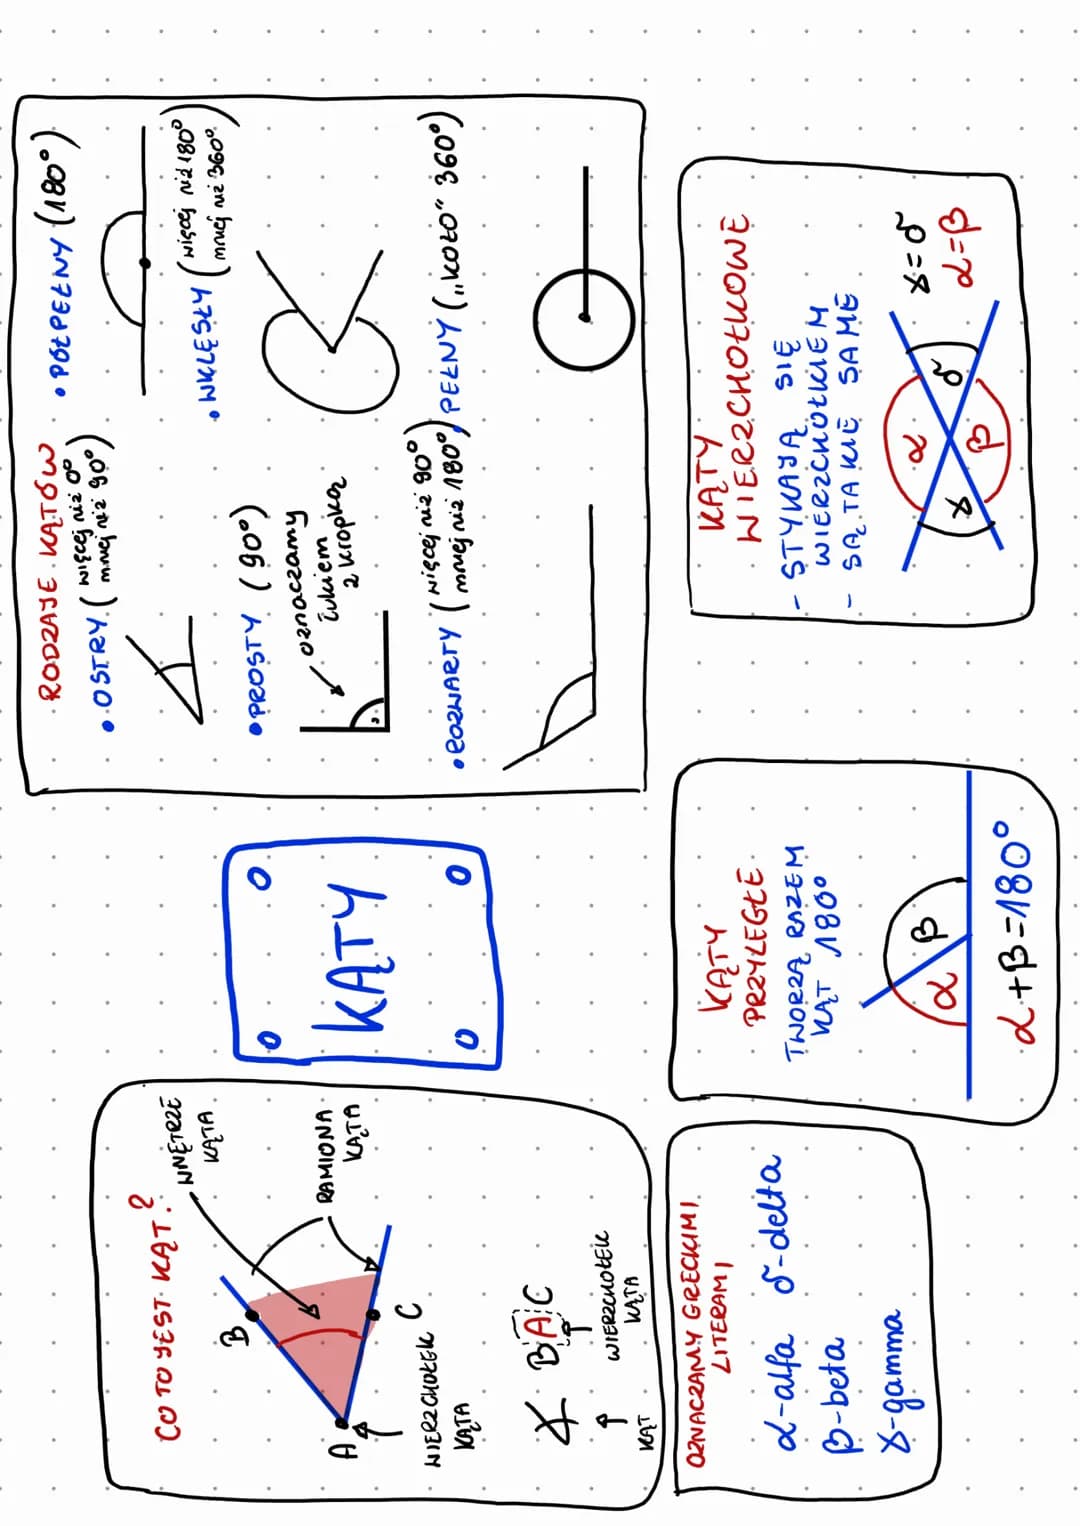 KĄTY
CO TO JEST KĄT?
WNĘTRZE
KĄTA
RAMIONA
KĄTA
B
A
C
WIERZCHOŁEK
KĄTA
∢ BAC
KĄT
WIERZCHOŁEK
KĄTA
OZNACZAMY GRECKIMI
LITERAMI
α-alfa δ-delta
β-beta
γ-gamma
KĄTY
PRZYLEGŁE
TWORZĄ RAZEM
KĄT 180°
α β
α+β=180°
RODZAJE KĄTÓW
• OSTRY (więcej niż 0°
mniej niż 90°)
• PROSTY (90°)
oznaczamy
łukiem
z kropką
• ROZWARTY (więcej niż 90°
mniej niż 180°)
• PÓŁPEŁNY (180°)
• WKLĘSŁY (więcej niż 180°
mniej niż 360°)
• PEŁNY („KOŁO" 360°)
KĄTY
WIERZCHOŁKOWE
- STYKAJĄ SIĘ
WIERZCHOŁKIEM
- SĄ TAKIE SAME
α
γ δ
β
γ=δ
α=β